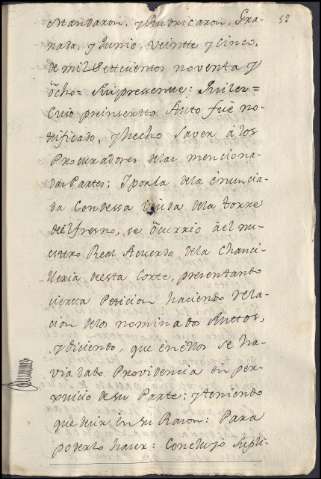 52
Mandaron, y Rubricaron, Gra-
nada, y Junio, veinte y cinco,
de mil Settecientos noventa y
ôcho= Fui presente:
Cuio preinserto Auto fuè no-
tificado, y hecho Saver à los
Procuradores delas menciona-
das Partes: Y porla dela enuncia-
da Condessa Viuda dela Torre
del fresno, se Ocurrio âel nu-
estro Real Acuerdo dela Chanci-
lleria desta Corte, presentando
cierta Peticion haciendo rela-
cion delos nominados Auttos,
y diciendo, que enellos se ha-
via dado Providencia en per-
xuicio de su Parte: y teniendo
que decir en su Razon: Para
poderlo hacer: Concluyo Supli-